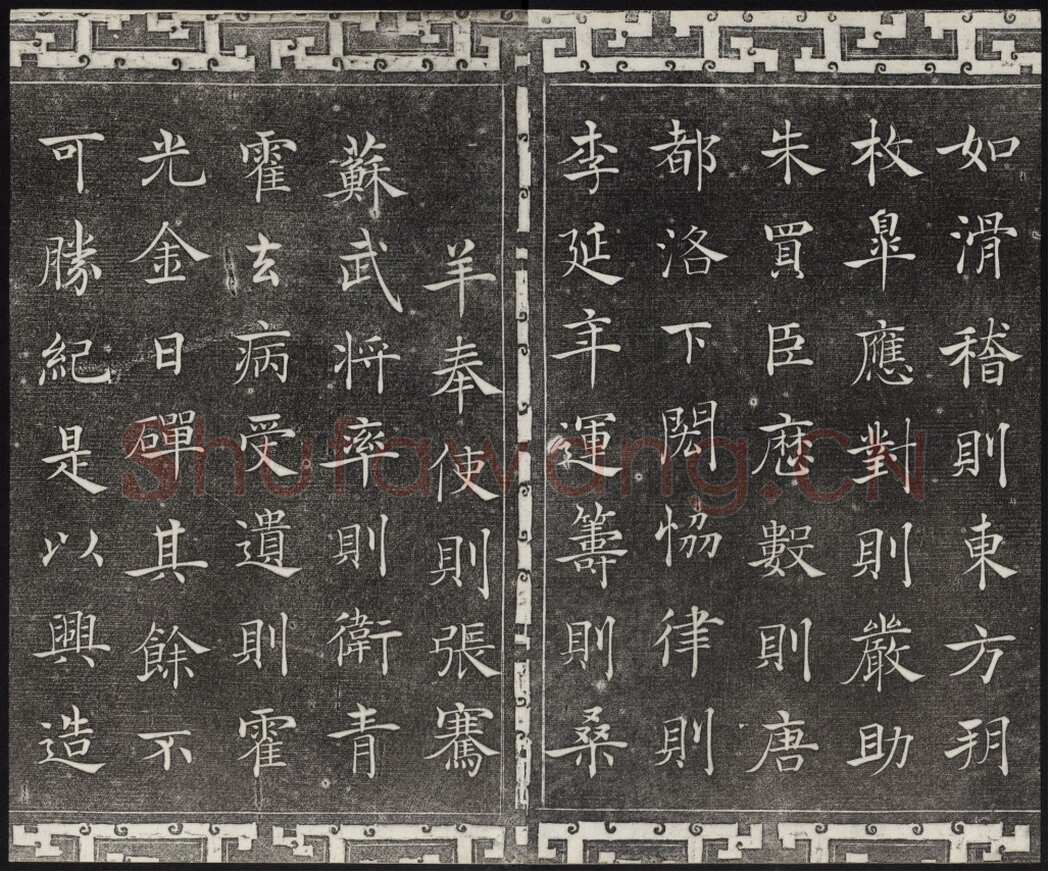 如滑稽則東方朔
枚皋應對則嚴助
朱買臣歷數則唐
都洛下閎恊律則
李延年運籌則桑
羊奉使則張騫
蘇武将率則衛青
霍去病受遺則霍
光金日磾其餘不
可勝紀是以興造
Shufawang.CN